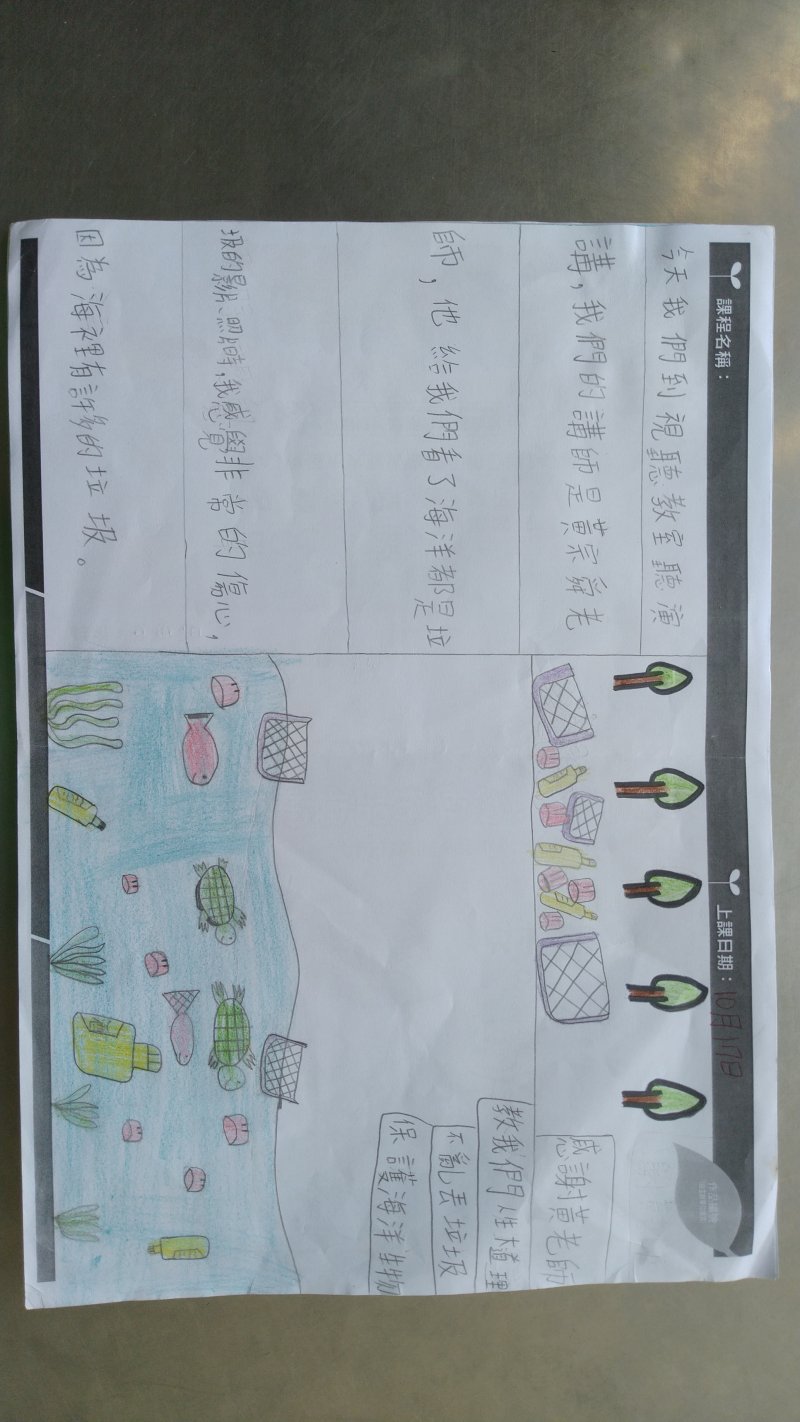 課程名稱：
上課日期：10月17日
今天我們到視聽教室聽演
講，我們的講師是黃宗舜老
師，他給我們看了海洋都是垃
圾的影照時，我感覺非常的傷心，
因為海裡有許多的垃圾。
感謝黃老師
教我們
不亂丟垃圾
保護海洋生物